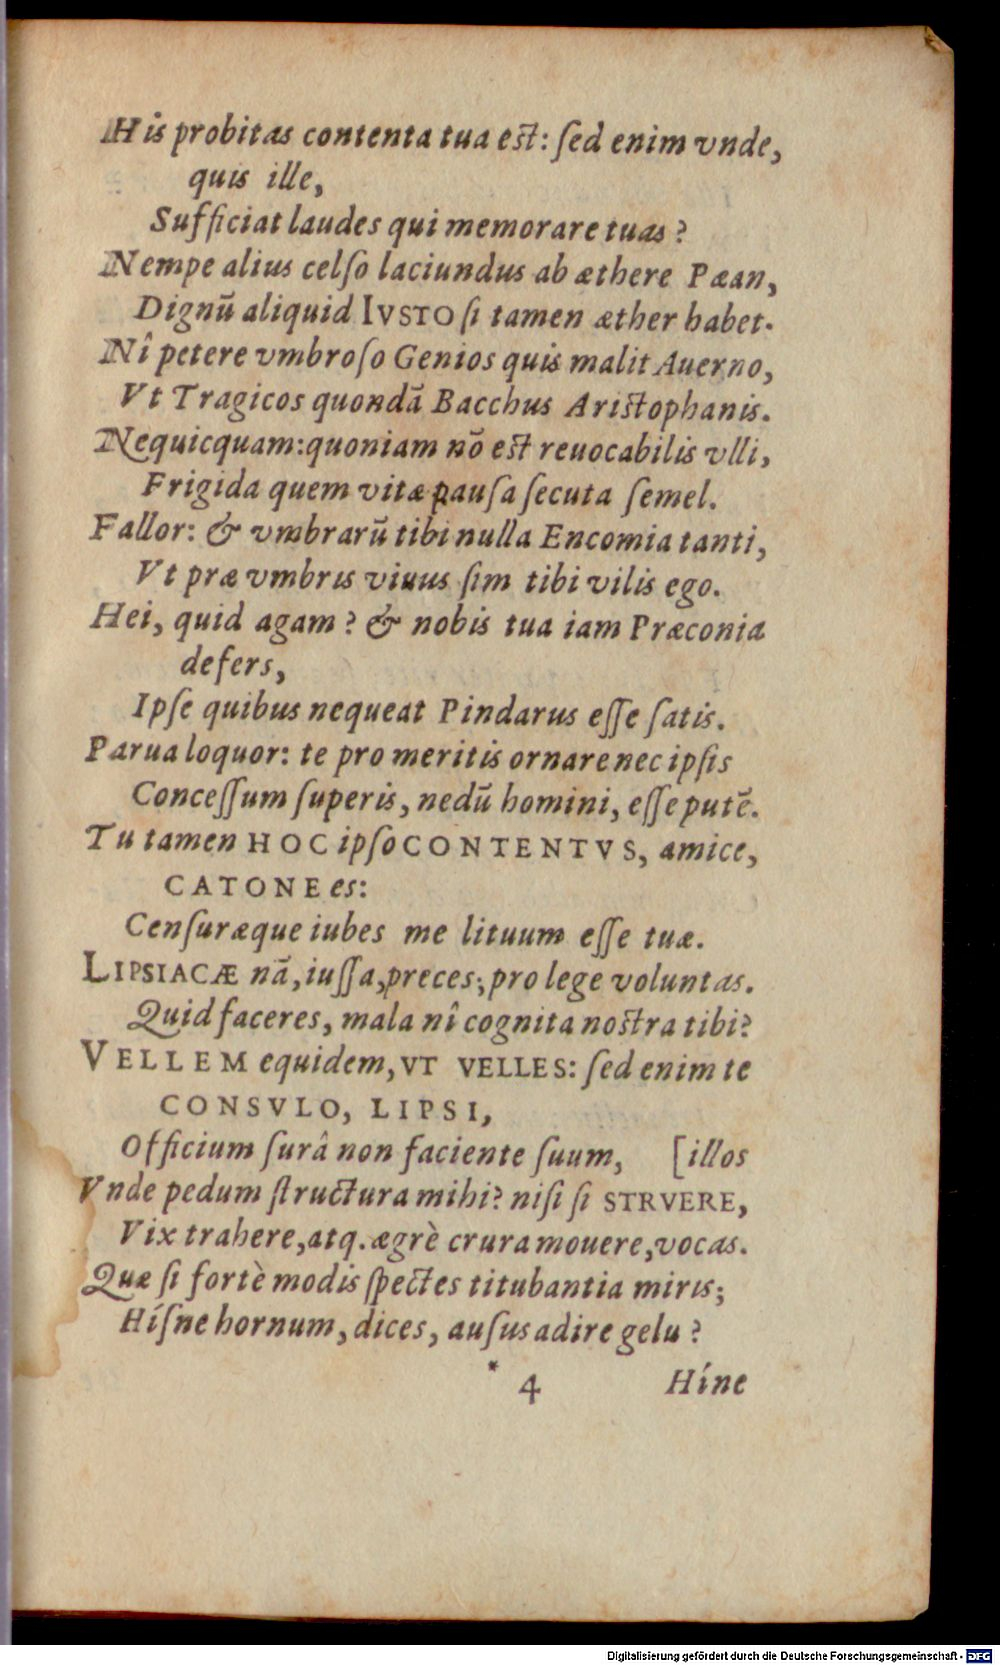 His probitas contenta tua est: ſed enim vnde,
quis ille,
Sufficiat laudes qui memorare tuas?
Nempe alius celſo laciundus ab æthere Pæan,
Dignũ aliquid IVSTO ſi tamen æther habet.
Nî petere vmbroſo Genios quis malit Auerno,
Vt Tragicos quondã Bacchus Aristophanis.
Nequicquam: quoniam nõ est reuocabilis vlli,
Frigida quem vitæ pauſa ſecuta ſemel.
Fallor: & vmbrarũ tibi nulla Encomia tanti,
Vt præ vmbris viuus ſim tibi vilis ego.
Hei, quid agam? & nobis tua iam Præconia
defers,
Ipſe quibus nequeat Pindarus eſſe ſatis.
Parua loquor: te pro meritis ornare nec ipſis
Conceſſum ſuperis, nedũ homini, eſſe putẽ.
Tu tamen HOC ipſo CONTENTVS, amice,
CATONE es:
Cenſuræque iubes me lituum eſſe tuæ.
LIPSIACÆ nã, iuſſa, preces; pro lege voluntas.
Quid faceres, mala nî cognita nostra tibi?
VELLEM equidem, VT VELLES: ſed enim te
CONSVLO, LIPSI,
Officium ſurâ non faciente ſuum, [illos
Vnde pedum ſtructura mihi? niſi ſi STRVERE,
Vix trahere, atq. ægrè crura mouere, vocas.
Quæ ſi fortè modis ſpectes titubantia miris;
Híſne hornum, dices, auſus adire gelu?
* 4 Híne
Digitalisierung gefördert durch die Deutsche Forschungsgemeinschaft - DFG